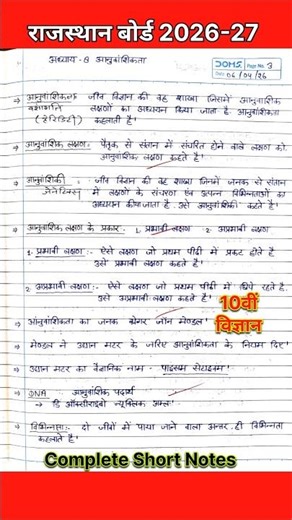 राजस्थान बोर्ड 2026-27
अध्याय - 8 आनुवांशिकता
DOMS Page No. 3
Date 06/04/26
जीव विज्ञान की वह शाखा जिसमें आनुवांशिक
लक्षणों का अध्ययन किया जाता है. आनुवांशिकता
(हेरिडिटी) कहलाती है'
आनुवांशिक लक्षण:- पैतृक से संतान में संचरित होने वाले लक्षण को
आनुवांशिक लक्षण कहते है'
आनुवांशिकी :- जीव विज्ञान की वह शाखा जिनमें जनक से संतान
जेनेटिक्स में लक्षणों के संचरण एवं उत्पन्न विभिन्नताओं का
अध्ययन किया जाता है. उसे आनुवांशिकी कहते है'
आनुवांशिक लक्षण के प्रकार:- 1. प्रभावी लक्षण 2. अप्रभावी लक्षण
1. प्रभावी लक्षण:- ऐसे लक्षण जो प्रथम पीढ़ी में प्रकट होते है
उसे प्रभावी लक्षण कहते है'
2. अप्रभावी लक्षण:- ऐसे लक्षण जो प्रथम पीढ़ी में छिपे रहते है.
उसे अप्रभावी लक्षण कहते है'
10वीं
विज्ञान
आनुवांशिकता का जनक ग्रेगर जॉन मेण्डल'
मेण्डल ने उद्यान मटर के जरिए आनुवांशिकता के नियम दिए'
उद्यान मटर का वैज्ञानिक नाम - पाइसम सेटाइवम'
DNA आनुवांशिक पदार्थ
डि ऑक्सीराइबो न्यूक्लिक अम्ल'
विभिन्नता:- दो जीवों में पाया जाने वाला अन्तर ही विभिन्नता
कहलाते है'
Complete Short Notes